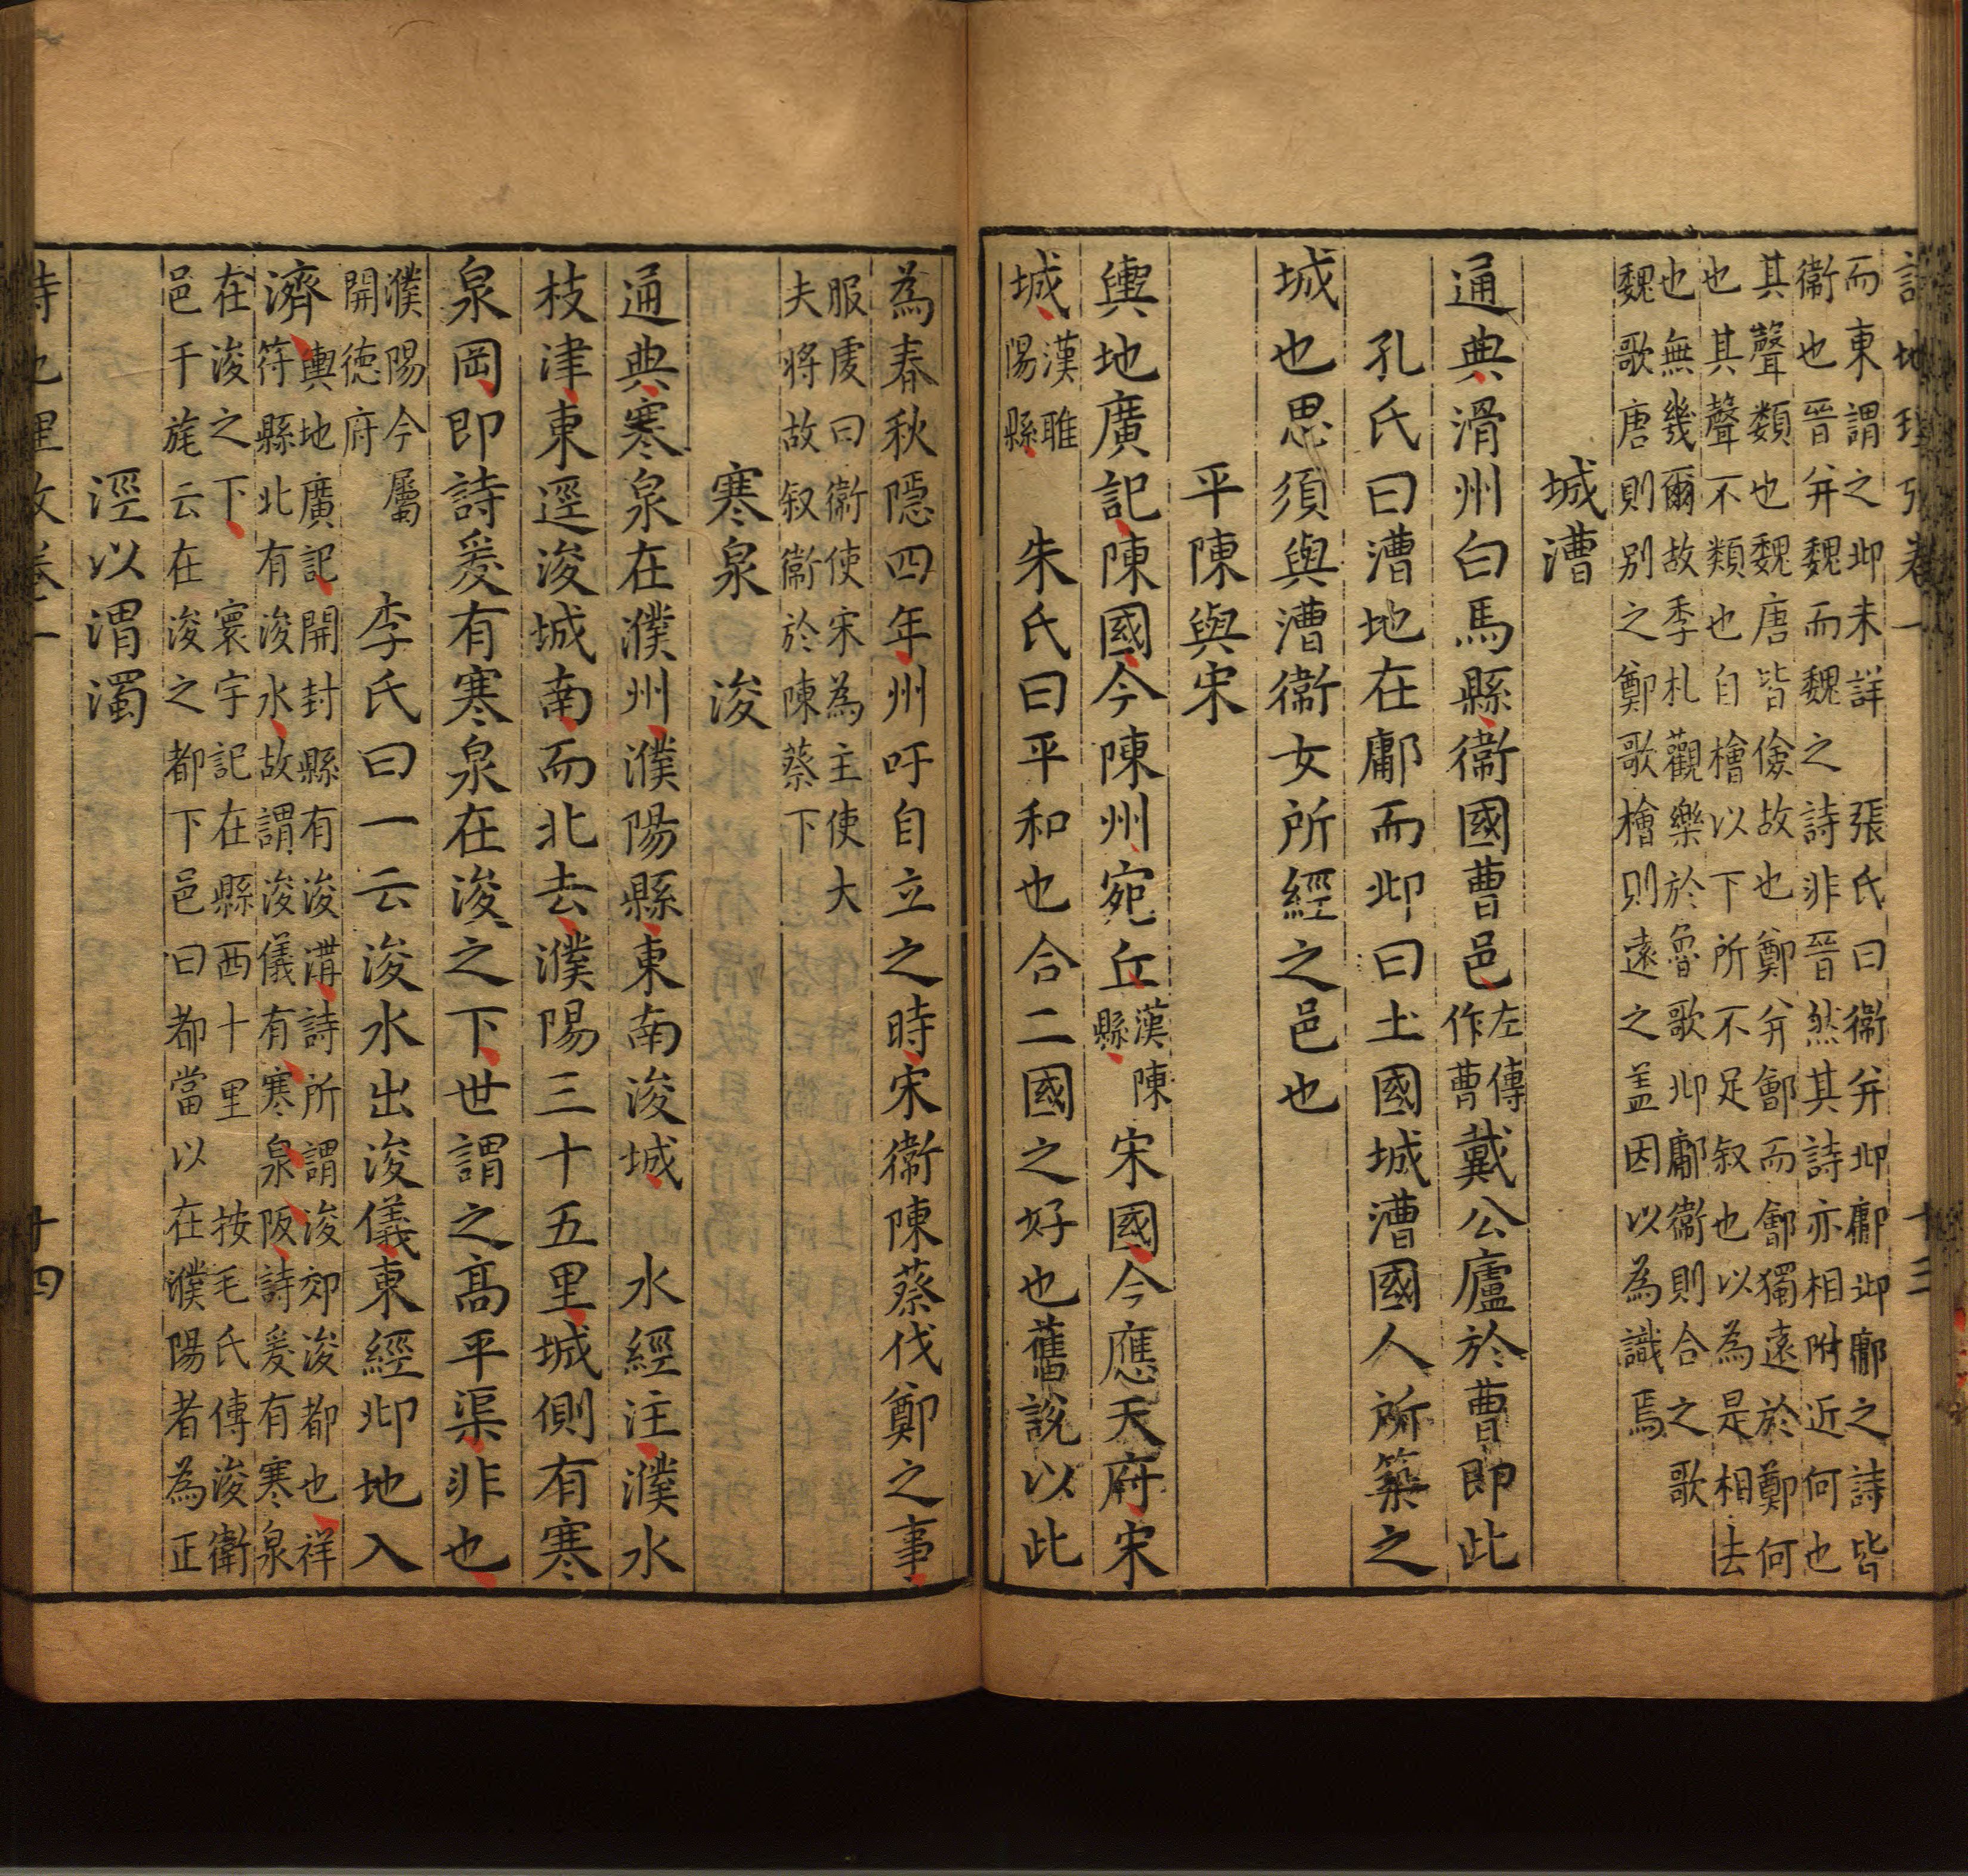 詩地理攷卷一 十三
而東謂之邶未詳 張氏曰衞并邶鄘邶鄘之詩皆
衞也晉并魏而魏之詩非晉然其詩亦相附近何也
其聲類也魏唐皆儉故也鄭并鄶而鄶獨遠於鄭何
也其聲不類也自檜以下所不足叙也以為是相法
也無幾爾故季札觀樂於魯歌邶鄘衞則合之歌
魏歌唐則别之鄭歌檜則遠之盖因以為識焉
城漕
通典滑州白馬縣衞國曹邑左傳作曹戴公廬於曹即此
孔氏曰漕地在鄘而邶曰土國城漕國人所築之
城也思須與漕衞女所經之邑也
平陳與宋
輿地廣記陳國今陳州宛丘漢陳縣宋國今應天府宋
城漢睢陽縣 朱氏曰平和也合二國之好也舊說以此
為春秋隱四年州吁自立之時宋衞陳蔡伐鄭之事
服虔曰衞使宋為主使大
夫將故叙衞於陳蔡下
寒泉 浚
通典寒泉在濮州濮陽縣東南浚城 水經注濮水
枝津東逕浚城南而北去濮陽三十五里城側有寒
泉岡即詩爰有寒泉在浚之下世謂之髙平渠非也
濮陽今屬開德府 李氏曰一云浚水出浚儀東經邶地入
濟輿地廣記開封縣有浚溝詩所謂浚郊浚都也祥
符縣北有浚水故謂浚儀有寒泉阪詩爰有寒泉
在浚之下 寰宇記在縣西十里 按毛氏傳浚衞
邑干旄云在浚之都下邑曰都當以在濮陽者為正
涇以渭濁
詩地理攷卷一 十四